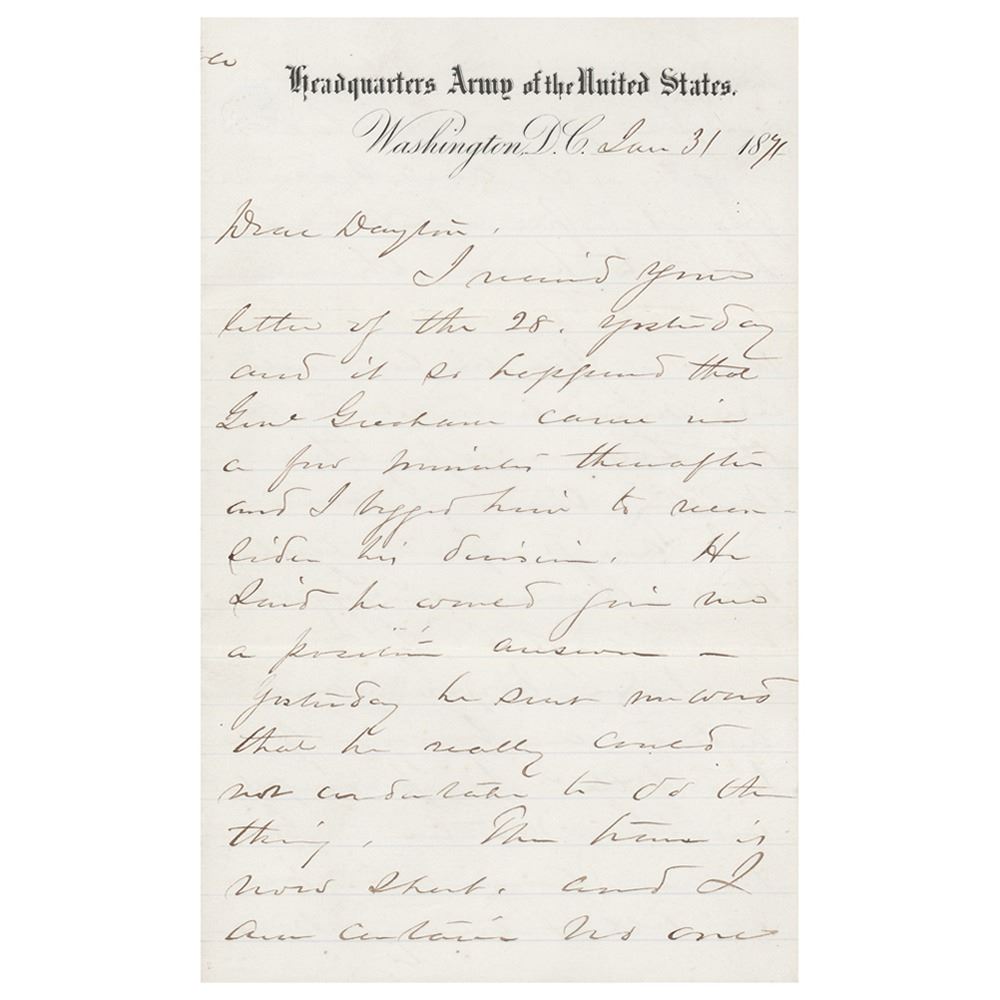 Headquarters Army of the United States.
Washington, D.C. Jan 31 1871
Dear Dayton,
I received your
letter of the 28. yesterday
and it so happened that
Genl Gresham came in
a few minutes thereafter
and I begged him to recon-
sider his decision. He
said he would give me
a positive answer —
Yesterday he sent me word
that he really could
not undertake to do the
thing. The time is
now short. and I
am certain no one